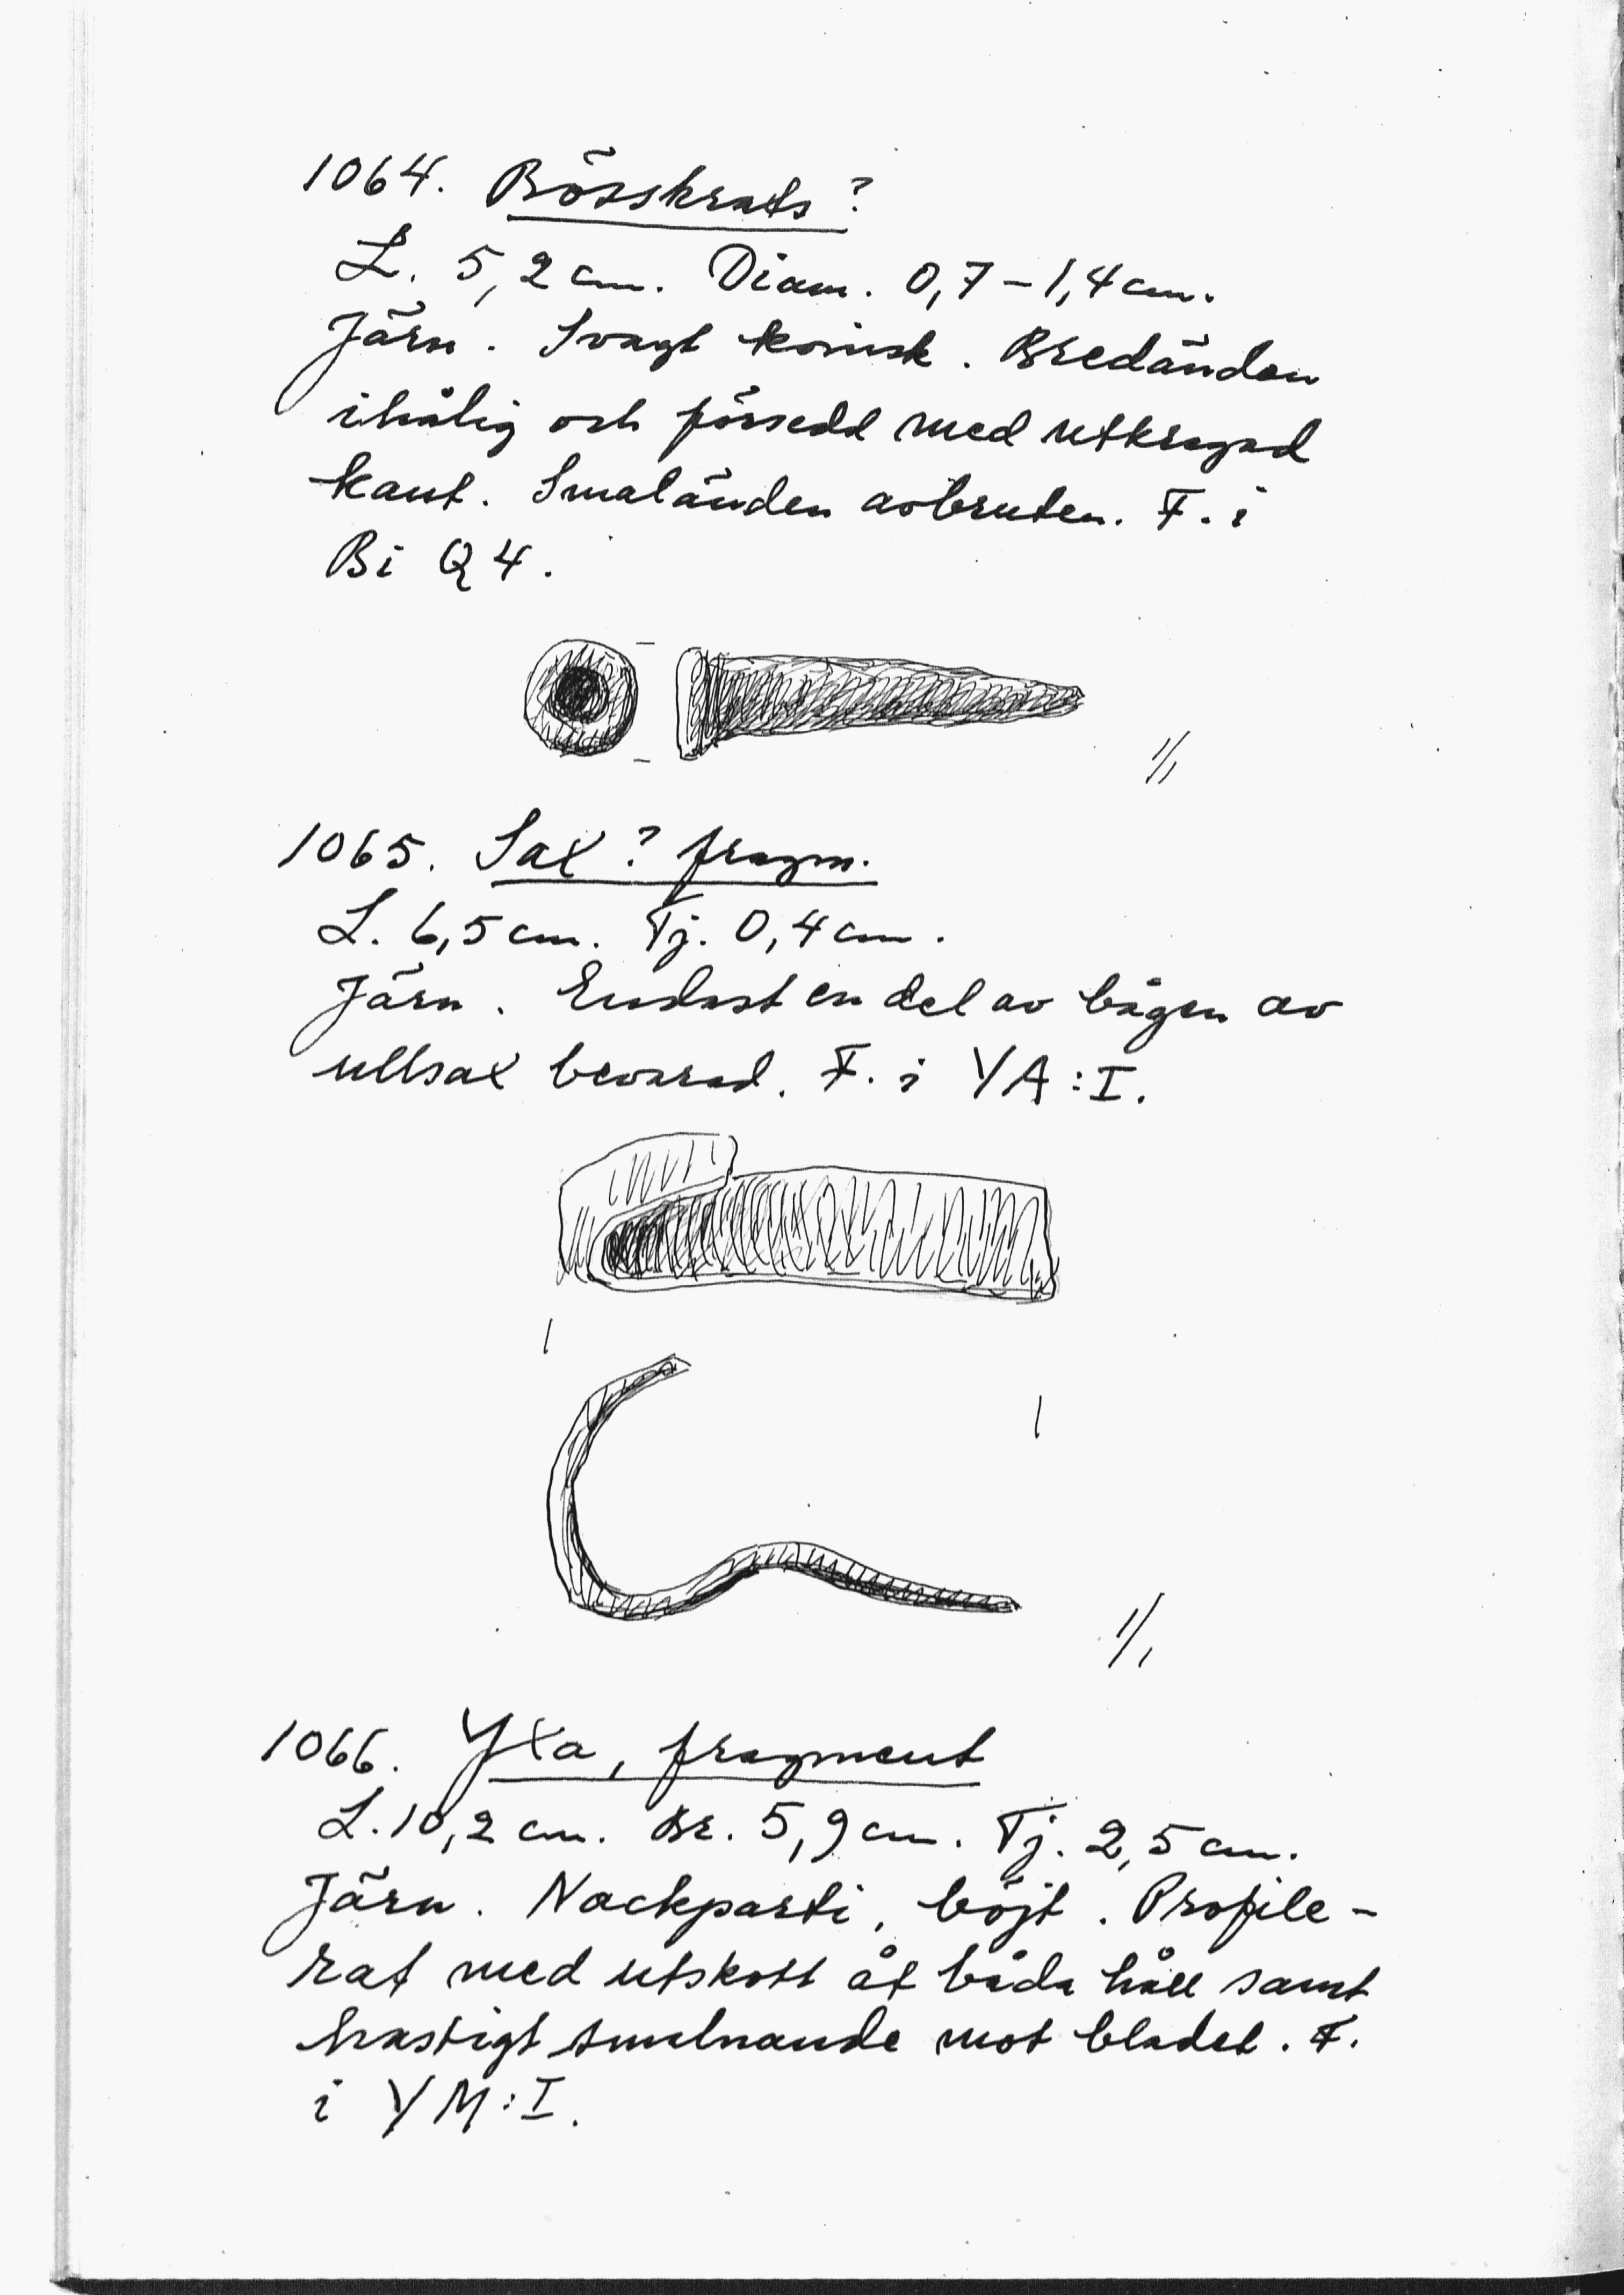 1064. Bösskrats?
L. 5,2 cm. Diam. 0,7-1,4 cm.
Järn. Svagt konisk. Bredänden
ihålig och försedd med utkragad
kant. Smaländen avbruten. F. i
Bi Q4.
1/1
1065. Sax? fragm.
L. 6,5 cm. Tj. 0,4 cm.
Järn. Endast en del av bågen av
ullsax bevarad. F. i YA:I.
1/1
1066. Yxa, fragment
L. 10,2 cm. Br. 5,9 cm. Tj. 2,5 cm.
Järn. Nackparti, böjt. Profile-
rat med utskott åt båda håll samt
hastigt smalnande mot bladet. F.
i YM:I.